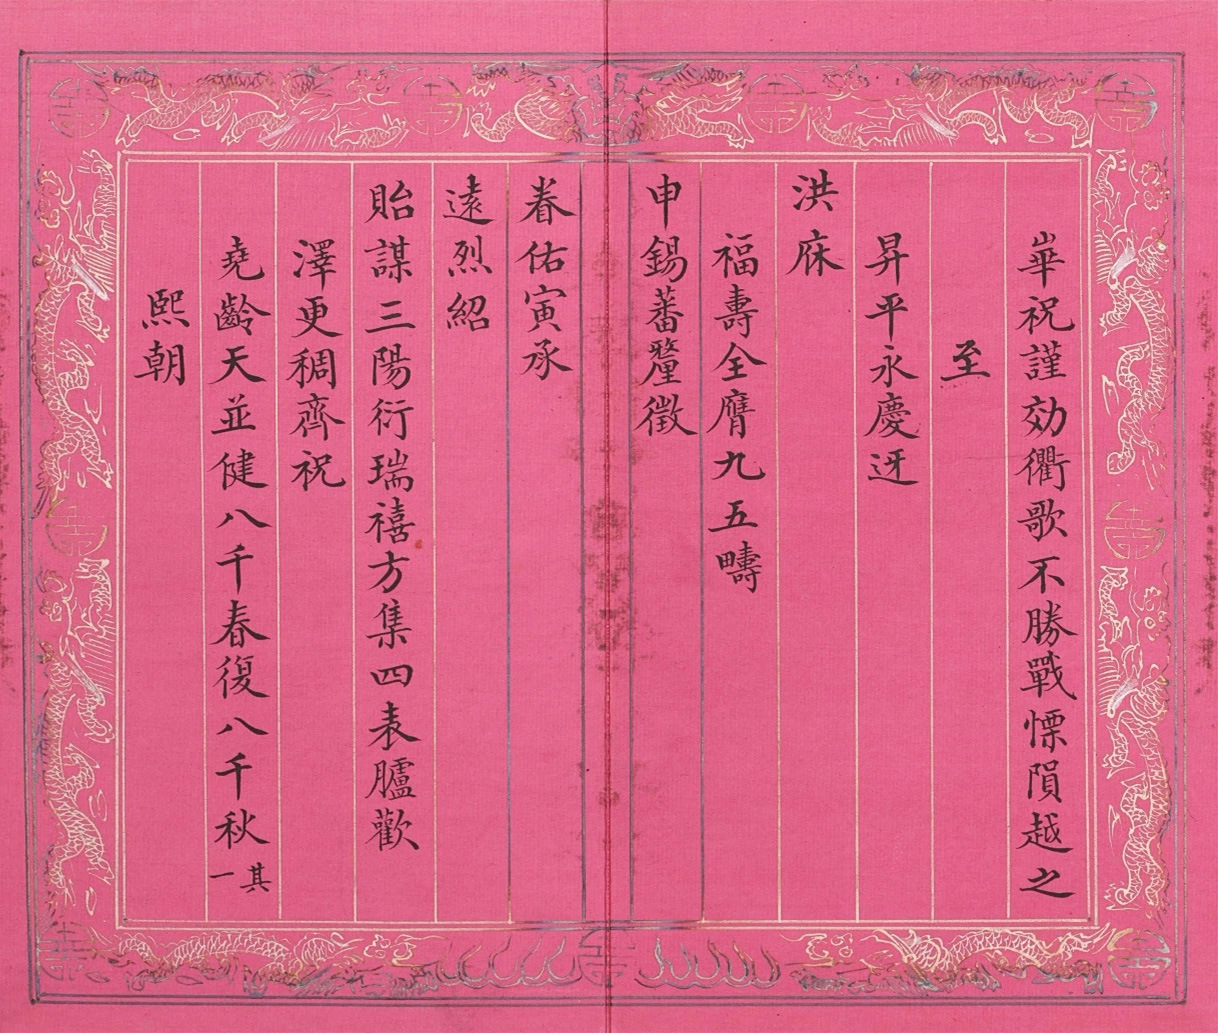 崋祝謹効衢歌不勝戰慄隕越之
至
昇平永慶迓
洪庥
福壽全膺九五疇
申錫蕃釐徵
眷佑寅承
遠烈紹
貽謀三陽衍瑞禧方集四表臚歡
澤更稠齊祝
堯齡天並健八千春復八千秋其一
熙朝